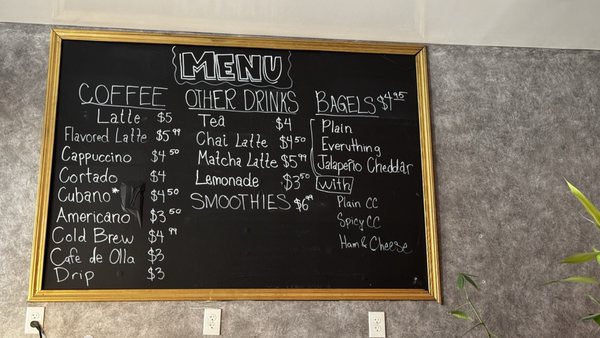 MENU
COFFEE
Latte $5
Flavored Latte $5.99
Cappuccino $4.50
Cortado $4
Cubano* $4.50
Americano $3.50
Cold Brew $4.99
Cafe de Olla $3
Drip $3
OTHER DRINKS
Tea $4
Chai Latte $4.50
Matcha Latte $5.99
Lemonade $3.50
SMOOTHIES $6.99
BAGELS $4.95
Plain
Everything
Jalapeño Cheddar
with
Plain CC
Spicy CC
Ham & Cheese